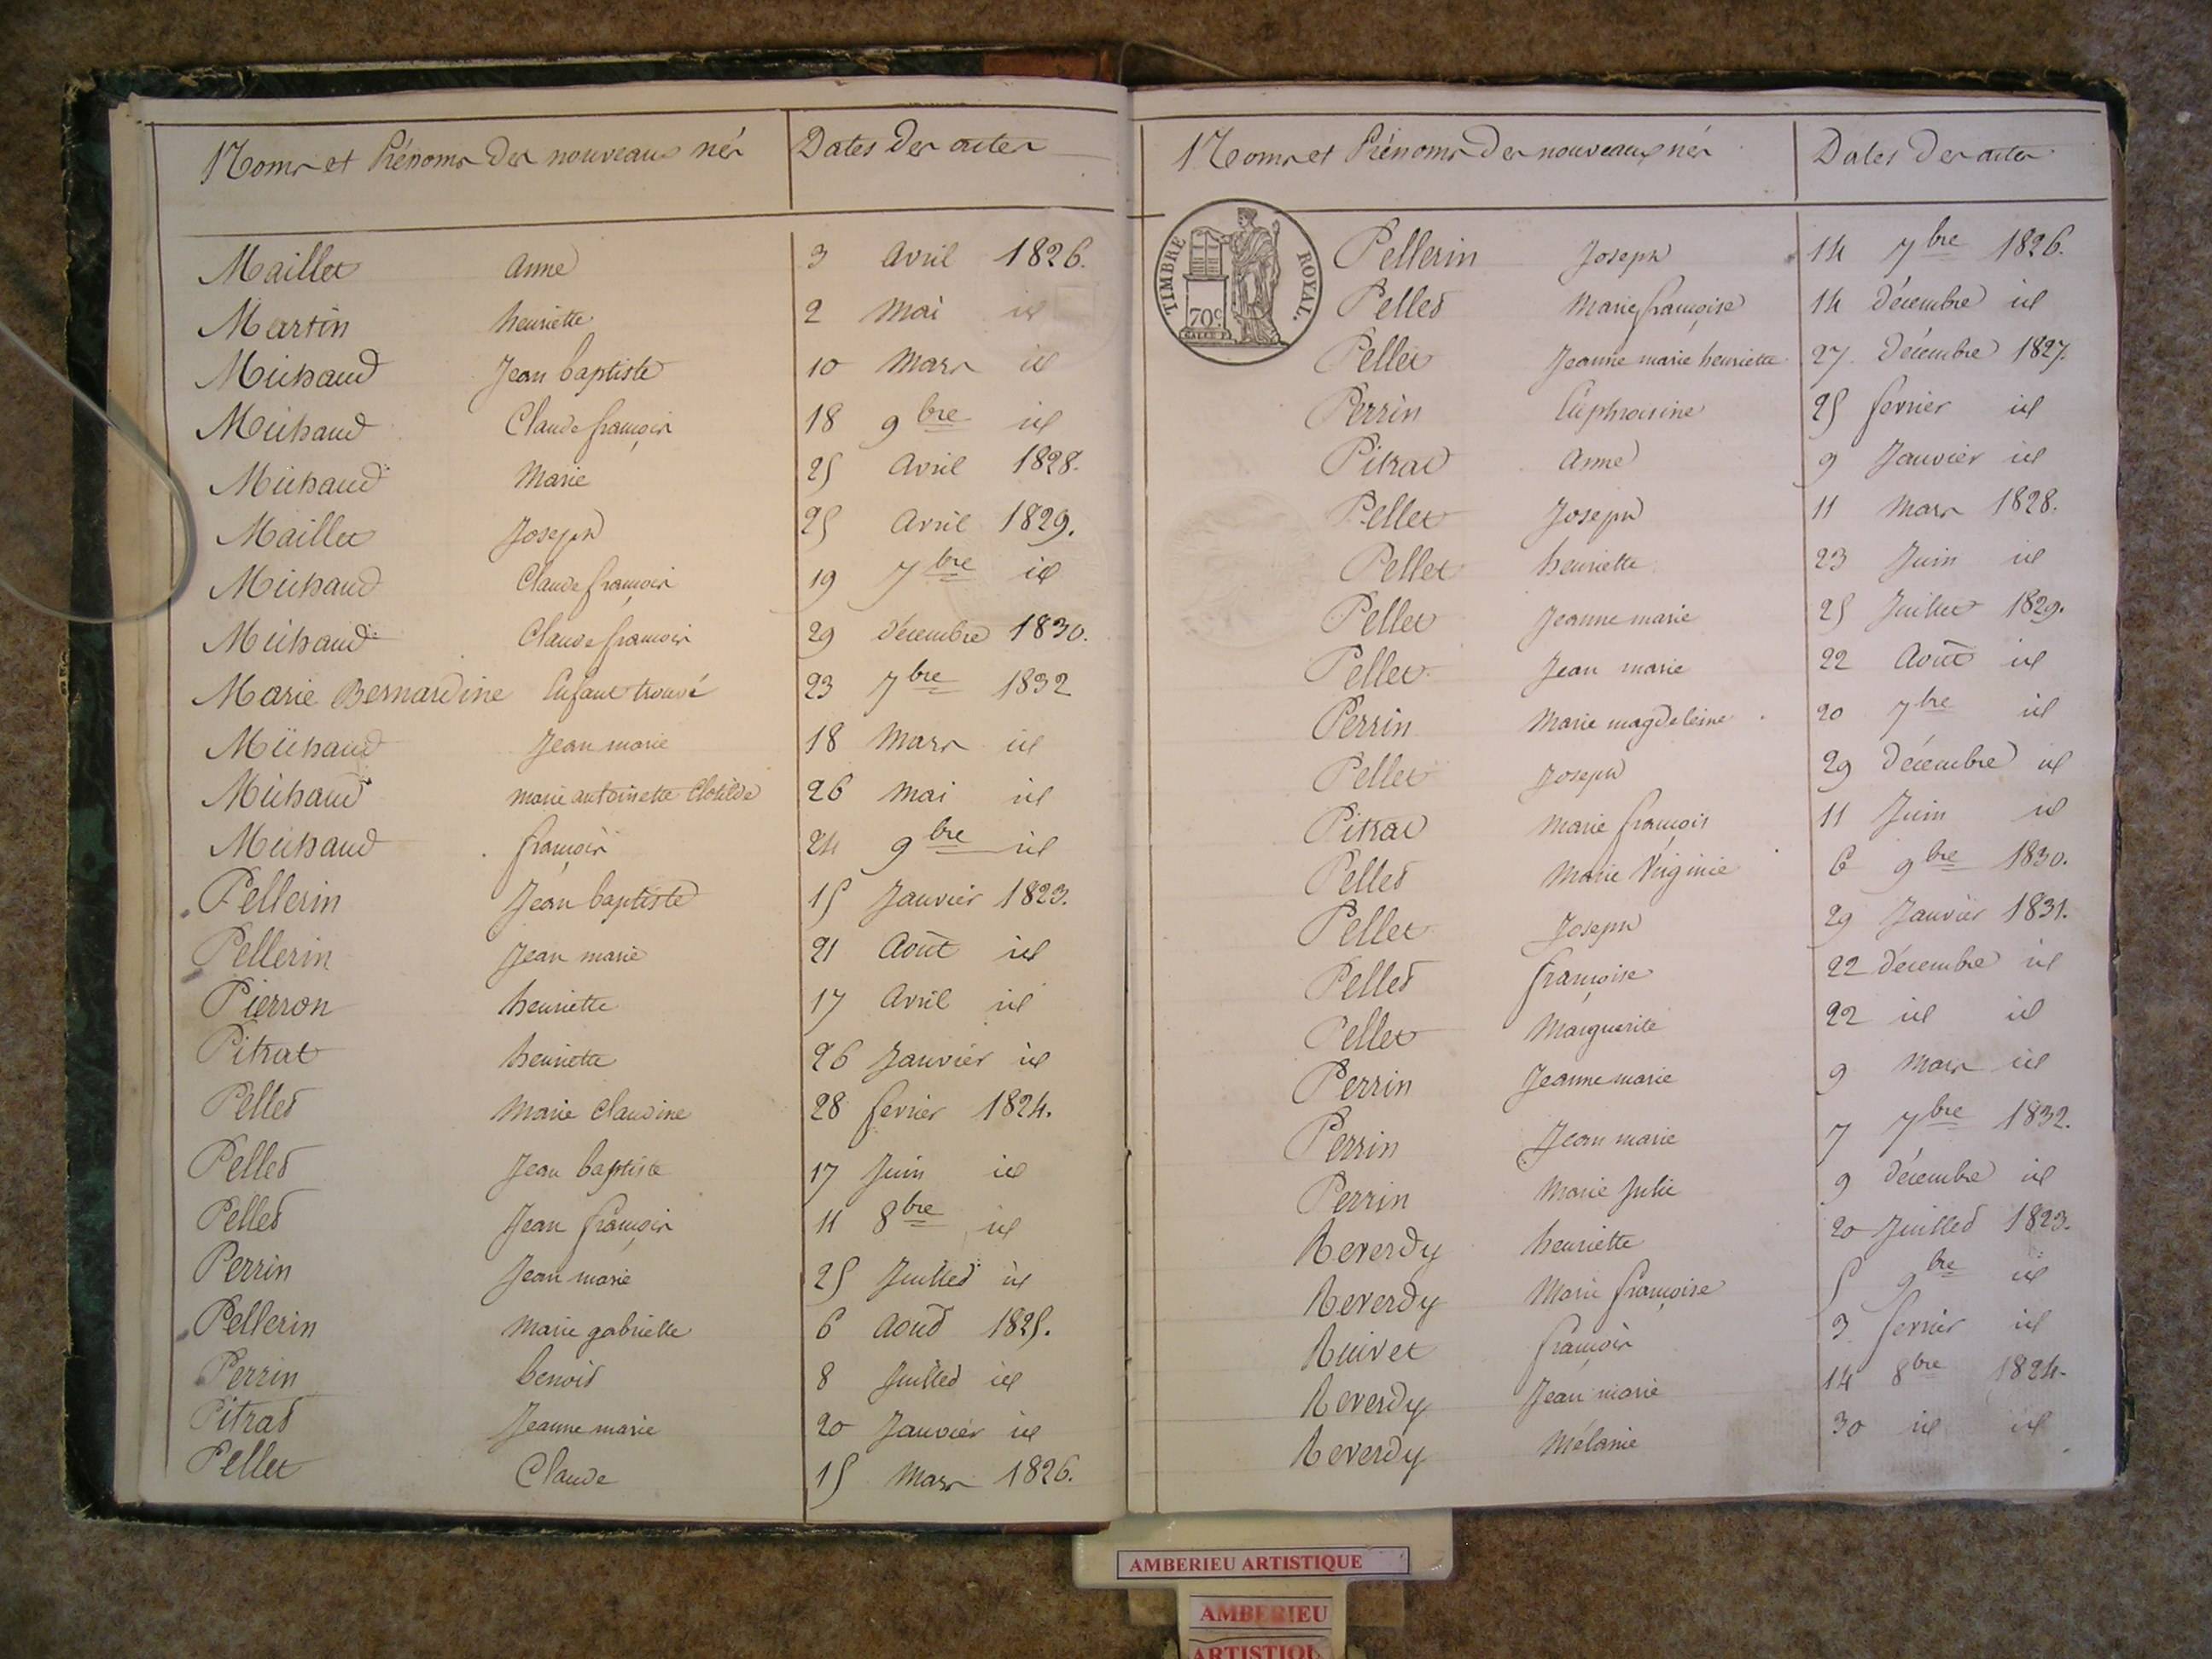 Noms et Prénoms des nouveaux nés Dates des actes
Maillet Anne 3 Avril 1826.
Martin henriette 2 Mai id
Michaud Jean baptiste 10 Mars id
Michaud Claude françois 18 9bre id
Michaud Marie 25 Avril 1828.
Maillet Joseph 25 Avril 1829.
Michaud Claude françois 19 7bre id
Michaud Claude françois 29 décembre 1830.
Marie Bernardine Enfant trouvé 23 7bre 1832
Michaud Jean marie 18 Mars id
Michaud marie antoinette Clotilde 26 Mai id
Michaud françois 24 9bre id
Pellerin Jean baptiste 15 Janvier 1823.
Pellerin Jean marie 21 Août id
Pierron henriette 17 Avril id
Pitrat henriette 26 Janvier id
Pellet Marie Claudine 28 fevrier 1824.
Pellet Jean baptiste 17 Juin id
Pellet Jean françois 11 8bre id
Perrin Jean marie 25 Juillet id
Pellerin Marie gabrielle 6 Aout 1825.
Perrin benoit 8 Juillet id
Pitrat Jeanne marie 20 Janvier id
Pellet Claude 15 Mars 1826.
Noms et Prénoms des nouveaux nés Dates des actes
TIMBRE ROYAL.
70c
Pellerin Joseph 14 7bre 1826.
Pellet Marie françoise 14 décembre id
Pellet Jeanne marie henriette 27 décembre 1827.
Perrin Euphroisine 25 fevrier id
Pitrat Anne 9 Janvier id
Pellet Joseph 11 Mars 1828.
Pellet henriette 23 Juin id
Pellet Jeanne marie 25 Juillet 1829.
Pellet Jean marie 22 Août id
Perrin Marie magdeleine 20 7bre id
Pellet Joseph 29 décembre id
Pitrat Marie françois 11 Juin id
Pellet Marie Virginie 6 9bre 1830.
Pellet Joseph 29 Janvier 1831.
Pellet françoise 22 décembre id
Pellet Marguerite 22 id id
Perrin Jeanne marie 9 Mars id
Perrin Jean marie 7 7bre 1832.
Perrin Marie Julie 9 décembre id
Reverdy henriette 20 Juillet 1823.
Reverdy Marie françoise 5 9bre id
Ruivet françois 3 fevrier id
Reverdy Jean marie 14 8bre 1824.
Reverdy Mélanie 30 id id
AMBERIEU ARTISTIQUE
AMBERIEU
ARTISTIQU